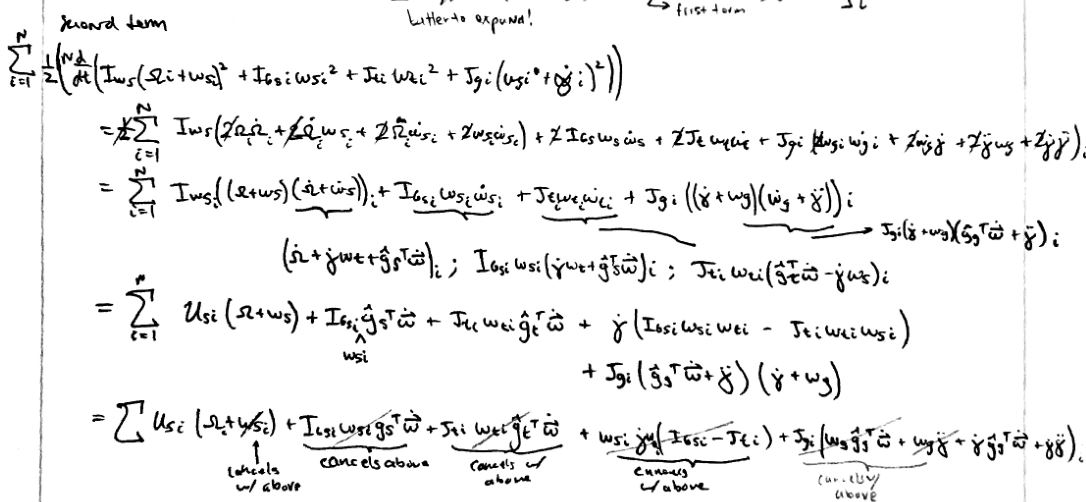 second term
better to expand!
→ first term
$\sum_{i=1}^{N} \frac{1}{2}\left(\frac{{}^{N}d}{dt}\left(I_{ws}(\Omega_i+\omega_{si})^2 + I_{Gsi}\omega_{si}^2 + J_{ti}\omega_{ti}^2 + J_{gi}(\omega_{gi}+\dot{\gamma}_i)^2\right)\right)$
$= \frac{1}{2}\sum_{i=1}^{N} I_{ws}(2\Omega_i\dot{\Omega}_i + 2\dot{\Omega}_i\omega_{si} + 2\Omega_i\dot{\omega}_{si} + 2\omega_{si}\dot{\omega}_{si}) + 2I_{Gs}\omega_s\dot{\omega}_s + 2J_t\omega_t\dot{\omega}_t + J_{gi}(2\omega_{gi}\dot{\omega}_{gi} + 2\dot{\omega}_g\dot{\gamma} + 2\ddot{\gamma}\omega_g + 2\dot{\gamma}\ddot{\gamma})_i$
$= \sum_{i=1}^{N} I_{wsi}((\Omega+\omega_s)(\dot{\Omega}+\dot{\omega}_s))_i + I_{Gsi}\omega_{si}\dot{\omega}_{si} + J_{ti}\omega_{ti}\dot{\omega}_{ti} + J_{gi}((\dot{\gamma}+\omega_g)(\dot{\omega}_g+\ddot{\gamma}))_i$
$\rightarrow J_{gi}(\dot{\gamma}+\omega_g)(\hat{g}_g^T\dot{\vec{\omega}}+\ddot{\gamma})_i$
$(\dot{\Omega}+\dot{\gamma}\omega_t+\hat{g}_s^T\dot{\vec{\omega}})_i ; I_{Gsi}\omega_{si}(\dot{\gamma}\omega_t+\hat{g}_s^T\dot{\vec{\omega}})_i ; J_{ti}\omega_{ti}(\hat{g}_t^T\dot{\vec{\omega}}-\dot{\gamma}\omega_s)_i$
$= \sum_{i=1}^{N} U_{si}(\Omega+\omega_s) + I_{Gsi}\underset{\wedge}{}\hat{g}_s^T\dot{\vec{\omega}} + J_{ti}\omega_{ti}\hat{g}_t^T\dot{\vec{\omega}} + \dot{\gamma}(I_{Gsi}\omega_{si}\omega_{ti} - J_{ti}\omega_{ti}\omega_{si})$
$\omega_{si}$
$+ J_{gi}(\hat{g}_g^T\dot{\vec{\omega}}+\ddot{\gamma})(\dot{\gamma}+\omega_g)$
$= \sum U_{si}(\Omega_i+\omega_{si}) + I_{Gsi}\omega_{si}\hat{g}_s^T\dot{\vec{\omega}} + J_{ti}\omega_{ti}\hat{g}_t^T\dot{\vec{\omega}} + \omega_{si}\dot{\gamma}\omega_t(I_{Gsi}-J_{ti}) + J_{gi}(\omega_g\hat{g}_g^T\dot{\vec{\omega}} + \omega_g\ddot{\gamma} + \dot{\gamma}\hat{g}_g^T\dot{\vec{\omega}} + \dot{\gamma}\ddot{\gamma})_i$
cancels w/ above
cancels above
cancels w/ above
cancels w/ above
cancels w/ above